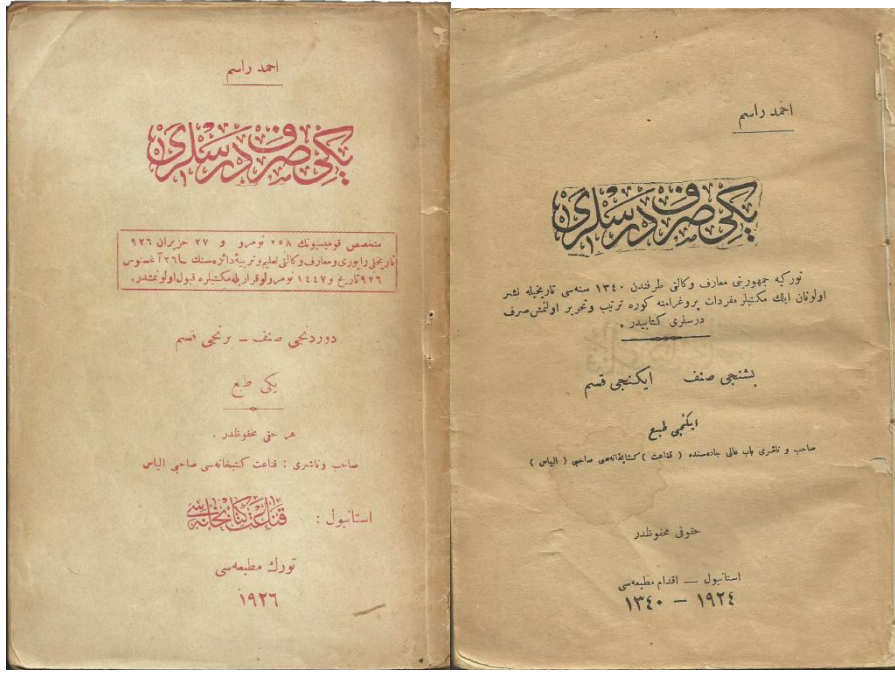 احمد راسم
یکی صرف درسلری
متخصص قومیسیونك ٢٥٨ نومرو و ٢٧ حزیران ٩٢٦
تاریخلی راپوری و معارف وكالتی تعلیم و تربیه دائره سنك ٢٦ آغستوس
٩٢٦ تاریخ و ١٤٤٧ نومرولو قراریله مكتبلره قبول اولونمشدر.
دوردنجی صنف – برنجی قسم
یكی طبع
هر حق محفوظدر .
صاحب و ناشری : قناعت كتبخانه سی صاحبی الیاس
استانبول : قناعت كتابخانه سی
تورك مطبعه سی
١٩٢٦
احمد راسم
یکی صرف درسلری
توركیه جمهوریتی معارف وكالتی طرفندن ١٣٤٠ سنه سی تاریخیله نشر
اولونان ایلك مكتبلر مفردات پروغرامنه كوره ترتیب و تحریر اولنمش صرف
درسلری كتابیدر .
بشنجی صنف ایكنجی قسم
ایكنجی طبع
صاحب و ناشری باب عالی جاده سنده ( قناعت ) كتابخانه سی صاحبی ( الیاس )
حقوقی محفوظدر
استانبول — اقدام مطبعه سی
١٣٤٠ – ١٩٢٤